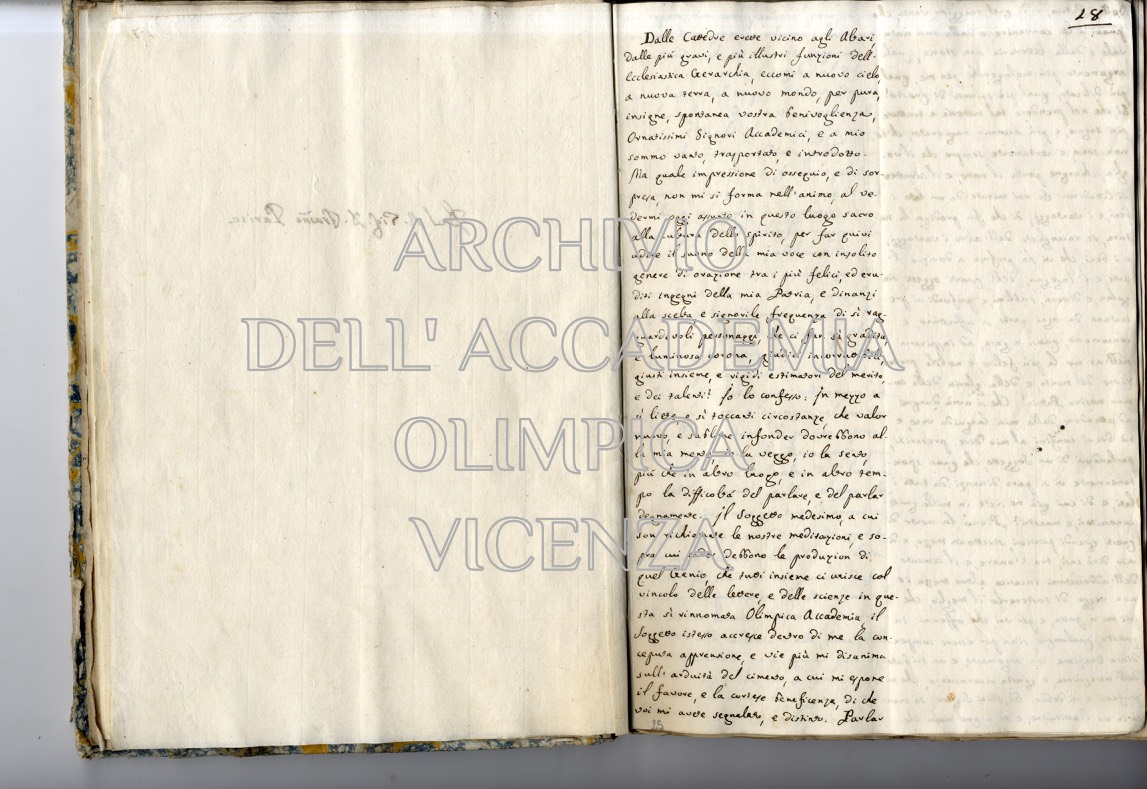 18
Dalle Cattedre erette vicino agli Altari,
dalle più gravi, e più illustri funzioni dell'
Ecclesiastica Gerarchia, eccomi a nuovo cielo,
a nuova terra, a nuovo mondo per pura,
insigne, spontanea vostra benivoglienza,
Ornatissimi Signori Accademici, e a mio
sommo vanto, trasportato, e introdotto.
Ma quale impressione di ossequio, e di sor-
presa, non mi si forma nell'animo, al ve-
dermi oggi assunto in questo luogo sacro
alla cultura dello spirito, per far quivi
udire il suono della mia voce con insolito
genere di orazione tra i più felici, ed eru-
diti ingegni della mia Patria, e dinanzi
alla scelta e signorile frequenza di sì rag-
guardevoli personaggi, che ci fan sì gradita,
e luminosa corona, giudici incorruttibili,
giusti insieme, e rigidi estimatori del merito,
e dei talenti? Io lo confesso: in mezzo a
sì liete, e sì toccanti circostanze, che valor
nuovo, e sublime infonder dovrebbono al-
la mia mente, io la veggo, io la sento,
più che in altro luogo, e in altro tem-
po la difficoltà del parlare, e del parlar
degnamente. Il Soggetto medesimo, a cui
son richiamate le nostre meditazioni, e so-
pra cui debbono le produzion di
quel Genio, che tutti insieme ci unisce col
vincolo delle lettere, e delle scienze in que-
sta sì rinnomata Olimpica Accademia, il
Soggetto istesso accresce dentro di me la con-
ceputa apprensione, e vie più mi disanima
sull'arduità del cimento, a cui mi espone
il favore, e la cortese beneficenza, di che
voi mi avete segnalato, e distinto. Parlar
25
ARCHIVIO
DELL' ACCADEMIA
OLIMPICA
VICENZA